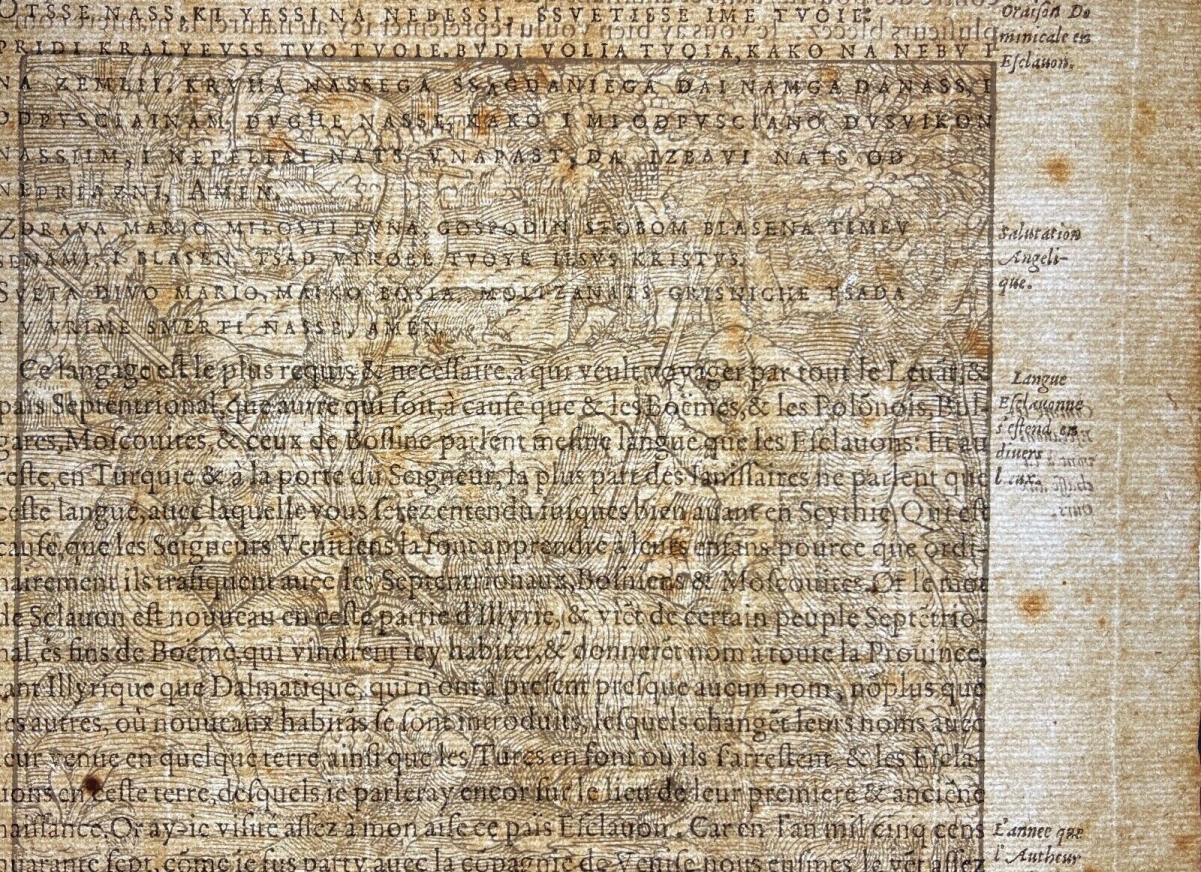 OTSSE NASS, KI YESSI NA NEBESSI, SSVETISSE IME TVOIE.
PRIDI KRALYEVSS TVO TVOIE. BVDI VOLIA TVOIA, KAKO NA NEBV I
NA ZEMLII. KRVHA NASSEGA SSAGDANIEGA DAI NAMGA DANASS, I
ODPVSCIAINAM DVGHE NASSE, KAKO I MI ODPVSCIANO DVSVIKON
NASSIIM, I NATS VNAPAST, DA IZBAVI NATS OD
NEPRIAZNI, AMEN.
ZDRAVA MARIO MILOSTI PVNA, GOSPODIN STOBOM BLASENA TIMEV
SENAMI, I BLASEN TSAD VTROBE TVOYE IESVS KRISTVS.
SVETA DIVO MARIO, MAIKO BOSIA, MOLIZANATS GRISNICHE YSADA
I V VRIME SMERTI NASSE, AMEN.
Ce langage est le plus requis & necessaire, à qui veult voyager par tout le Leuāt, &
païs Septentrional, que autre qui soit, à cause que & les Boëmes, & les Polōnois, Bul-
gares, Moscouites, & ceux de Bossine parlent mesme langue que les Esclauons: Et au
reste, en Turquie & à la porte du Seigneur, la plus part des Ianissaires ne parlent que
ceste langue, auec laquelle vous serez entendu iusques bien auant en Scythie, Qui est
cause, que les Seigneurs Venitiens la font apprendre à leurs enfans pource que ordi-
nairement ils trafiquent auec les Septentrionaux, Bosniens & Moscouites. Or le mot
de Sclauon est nouueau en ceste partie d'Illyrie, & viēt de certain peuple Septētrio-
nal, és fins de Boëme, qui vindrent icy habiter, & donnerēt nom à toute la Prouince,
tant Illyrique que Dalmatique, qui n'ont à present presque aucun nom, nōplus que
les autres, où nouueaux habitās se sont introduits, lesquels changēt leurs noms auec
leur venue en quelque terre, ainsi que les Turcs en font où ils s'arrestent, & les Escla-
uons en ceste terre, desquels ie parleray encor sur le lieu de leur premiere & anciēne
naissance, Or ay-ie visité assez à mon aise ce païs Esclauon. Car en l'an mil cinq cens
quarante sept, cōme ie fus party auec la cōpagnie de Venise nous eusmes le vēt assez
Oraison Do
minicale en
Esclauon.
Salutation
Angeli-
que.
Langue
Esclauonne
s'estend en
diuers
lieux.
L'annee que
l'Autheur